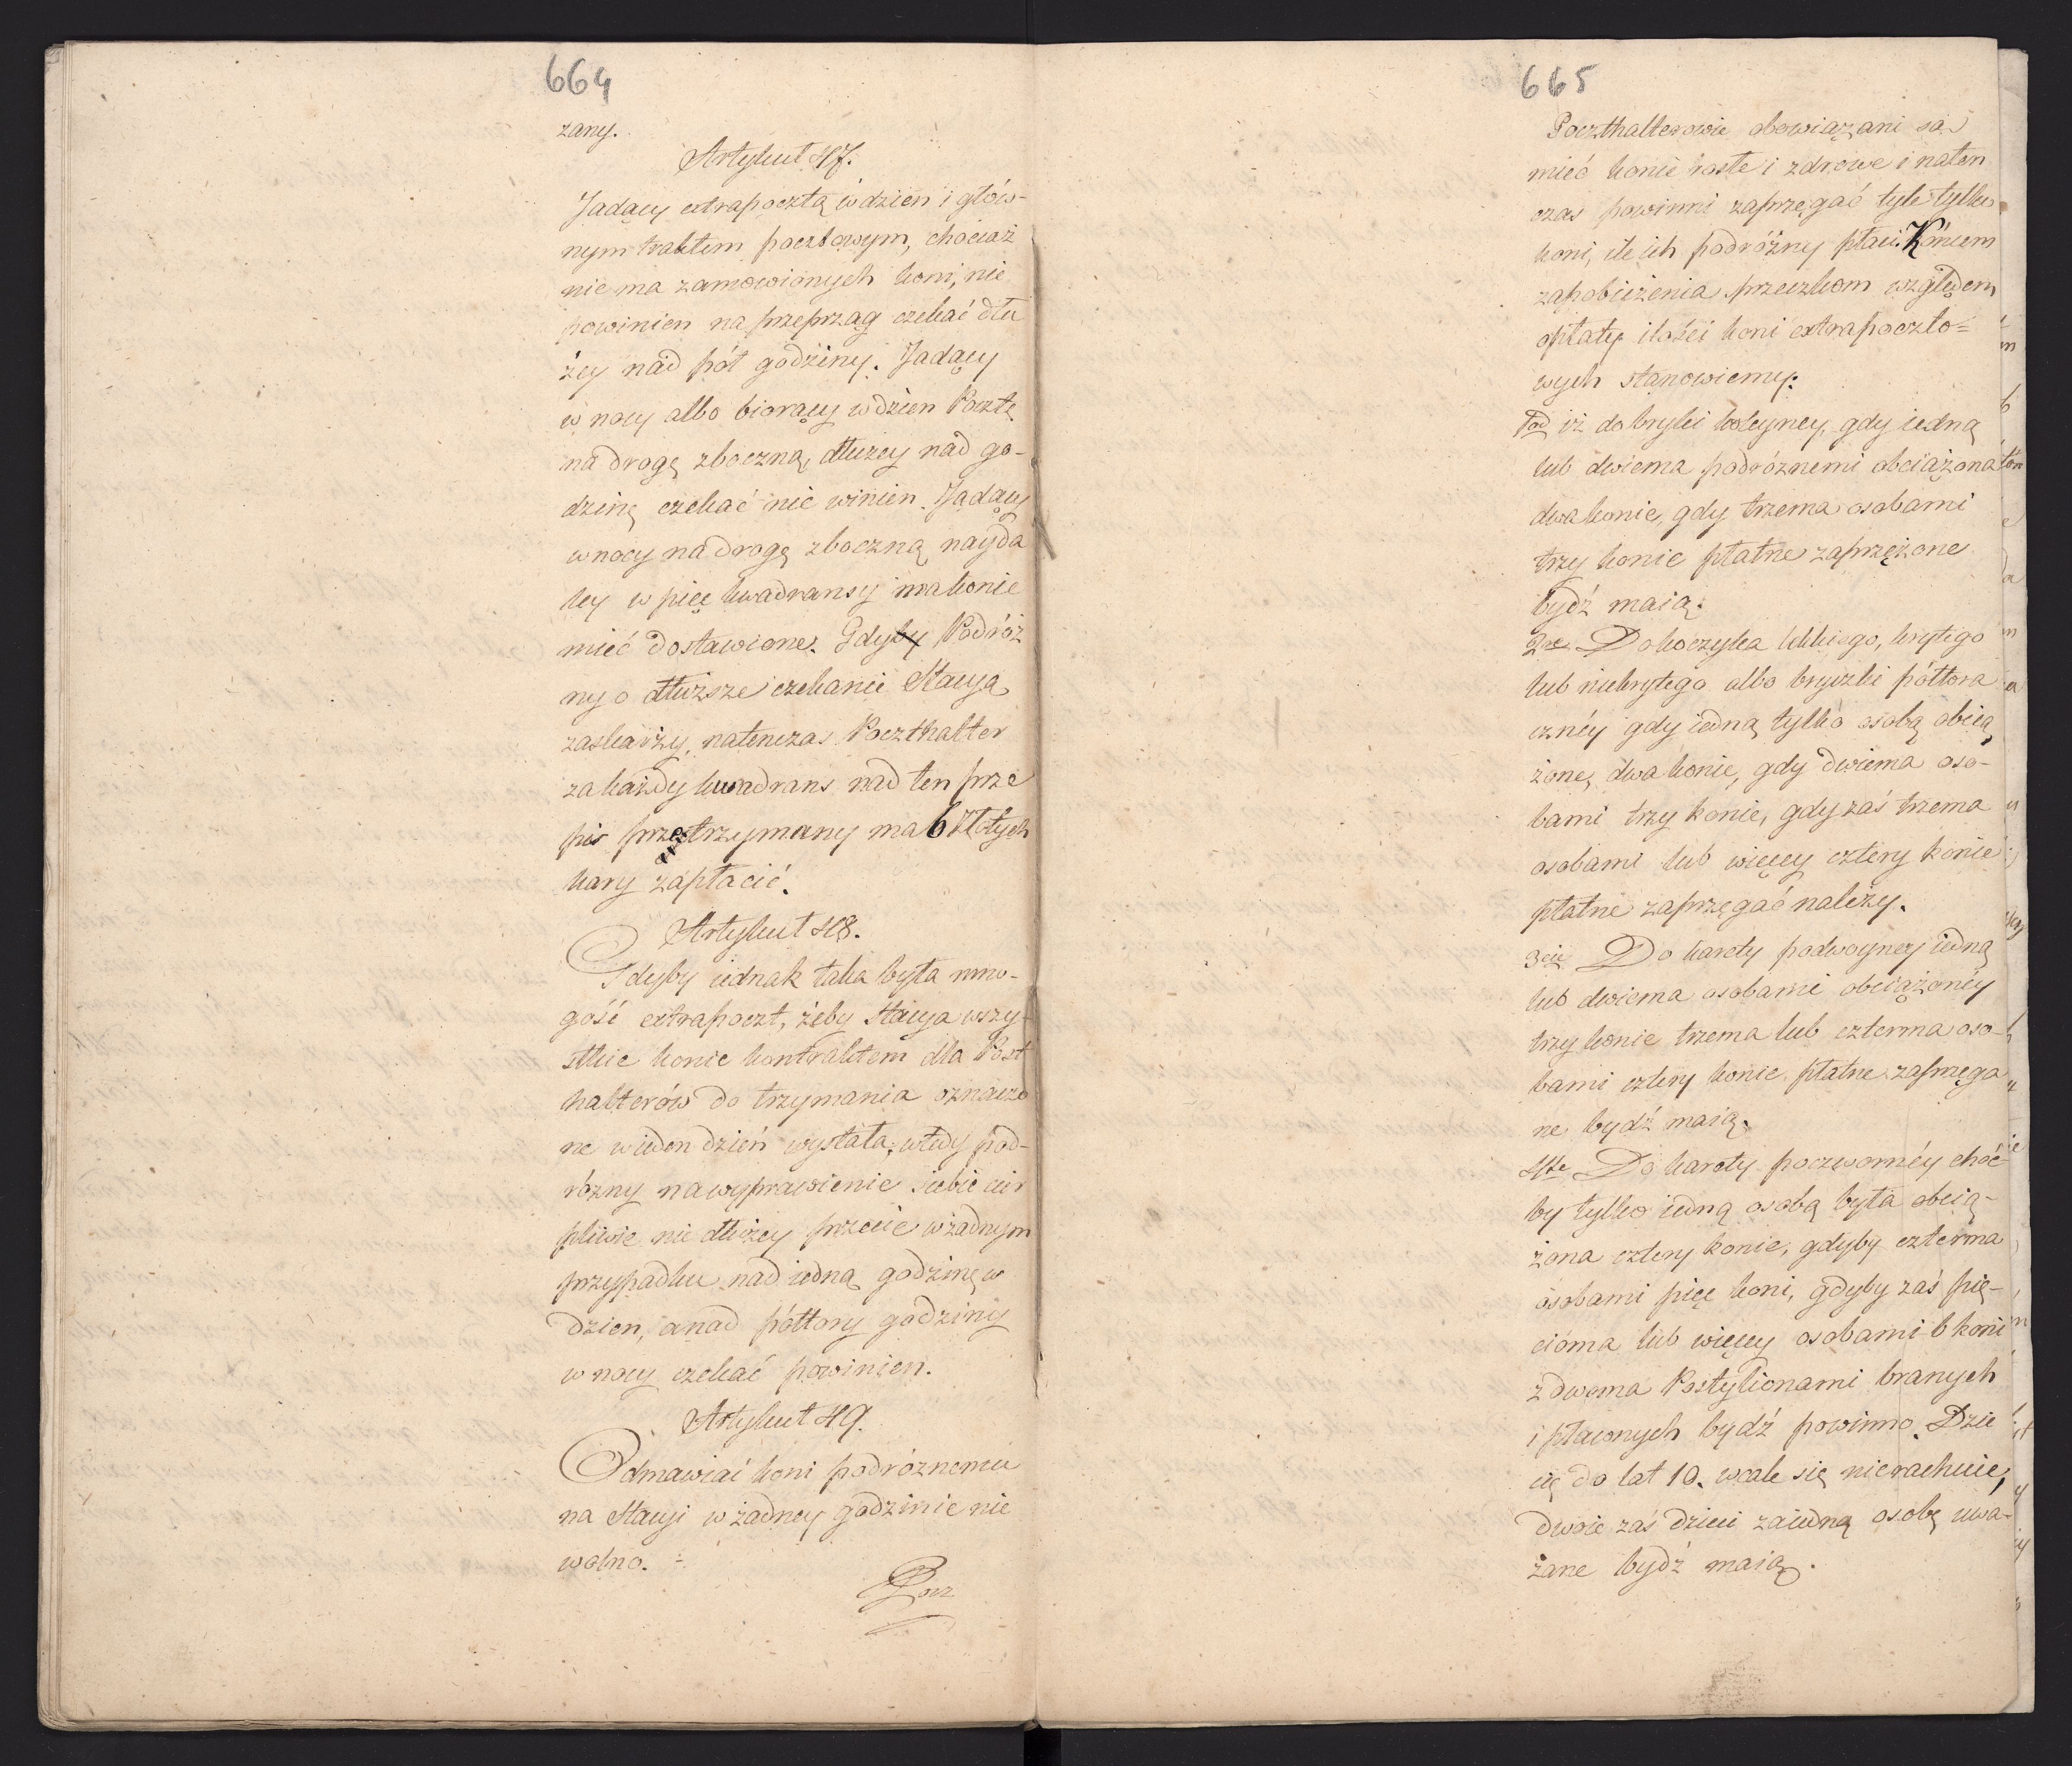 664
zany.
Artykuł 47.
Jadący extrapocztą w dzien i głów-
nym traktem pocztowym, chociaż
nie ma zamowionych koni, nie
powinien na przeprząg czekać dłu
żey nad pół godziny. Jadący
w nocy albo biorący w dzien Pocztę
na drogę zboczną, dłużey nad go-
dzinę czekać nie winien. Jadący
w nocy na drogę zboczną nayda
ley w pięc kwadransy ma konie
mieć dostawione. Gdyby Podróż
ny o dłuższe czekanie Stacyą
zaskarży, natenczas Poczthalter
za każdy kwadrans nad ten prze
pis przetrzymany ma 6 Złotych
kary zapłacić.
Artykuł 48.
Gdyby iednak taka była mno-
gość extrapoczt, żeby Stacya wszy-
stkie konie kontraktem dla Post
halterów do trzymania oznaczo
ne w ieden dzień wysłała, wtedy pod-
różny na wyprawienie siebie cier
pliwie nie dłużey przecie w żadnym
przypadku nad iedną godzinę w
dzien, a nad półtory godziny
w nocy czekać powinien.
Artykuł 49.
Odmawiać koni podróznemu
na Stacyi w żadney godzinie nie
wolno. ÷
Pocz
665
Poczthalterowie obowiązani są
mieć konie rosłe i zdrowe i naten
czas powinni zaprzęgać tyle tylko
koni, ile ich podróżny płaci. Końcem
zapobieżenia przeczkom względem
opłaty ilości koni extrapoczto=
wych stanowiemy:
1od iż do bryki koleyney, gdy iedną
lub dwiema podróznemi obciążona
dwa konie, gdy trzema osobami
trzy konie płatne zaprzężone
bydź maią.
2re Do koczyka lekkiego, krytego
lub niekrytego albo bryczki półtora
cznéy gdy iedną tylko osobą obcią
żone, dwa konie, gdy dwiema oso-
bami trzy konie, gdy zaś trzema
osobami lub więcey cztery konie
płatne zaprzęgać należy.
3cie Do karety podwoyney iedną
lub dwiema osobami obciążonéy
trzy konie trzema lub czterma oso-
bami cztery konie płatne zaprzęga
ne bydź maią.
4te Do karety poczwornéy choć-
by tylko iedną osobą była obcią-
żona cztery konie, gdyby czterma
osobami pięc koni, gdyby zaś pię-
cioma lub więcey osobami 6 koni
z dwoma Postylionami branych
i płaconych bydź powinno. Dzie
cię do lat 10. wcale się nierachuie,
dwoie zaś dzieci za iedną osobę uwa-
żane bydź maią.